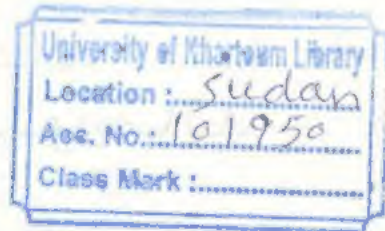 University of Khartoum Library
Location : Sudan
Acc. No. : 101950
Class Mark :